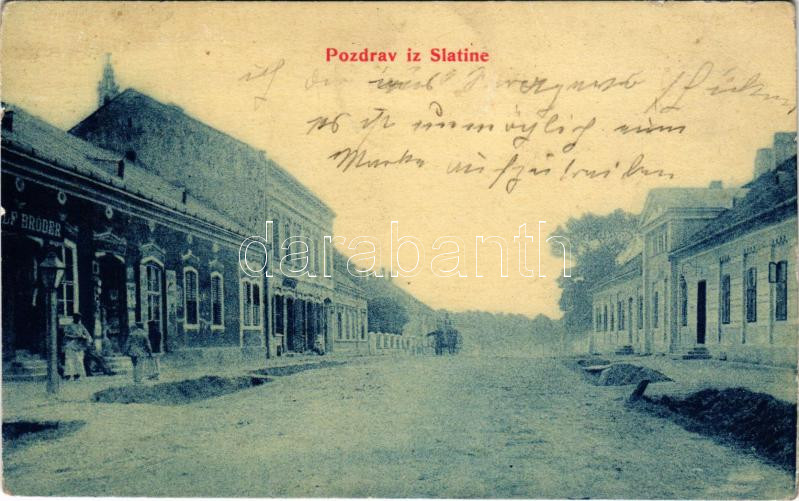 Pozdrav iz Slatine
ich dir
es ist unmöglich eine
Marke aufzutreiben
LF BRÖDER
darabanth